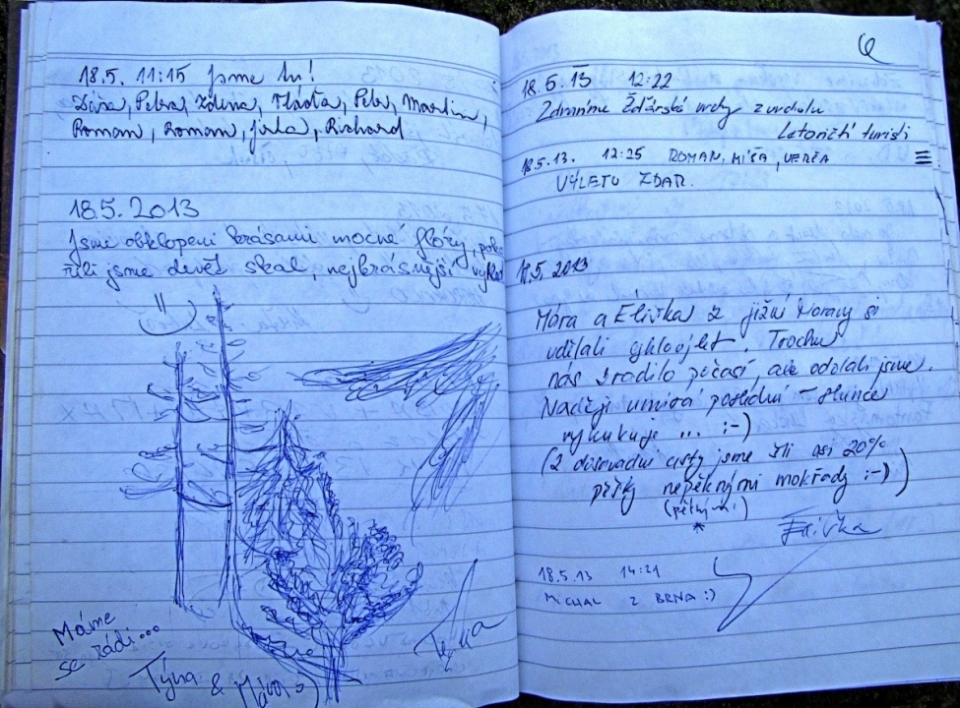 18.5. 11:15 jsme tu!
Dáša, Petra, Zdena, Vlasta, Petr, Martin,
Roman, Roman, jirka, Richard
18.5.2013
Jsme obklopeni krásami mocné flóry, poko-
řili jsme devět skal, nejkrásnější výhled
Máme
se rádi...
Týna &
6
18.5.13 12:22
Zdravíme Žďárské vrchy z vrcholu
Letovičtí turisti
18.5.13. 12:25 ROMAN, MÍŠA, VERČA
VÝLETU ZDAR.
18.5.2013
Mára a Elivka z jižní Moravy si
udělali cyklovýlet. Trochu
nás zradilo počasí, ale odolali jsme.
Naděje umírá poslední - slunce
vykukuje ... :-)
(Z dosavadní cesty jsme šli asi 20%
pěšky nepěknými mokřady :-))
(pěknými)
*
Elivka
18.5.13 14:21
MICHAL Z BRNA :)